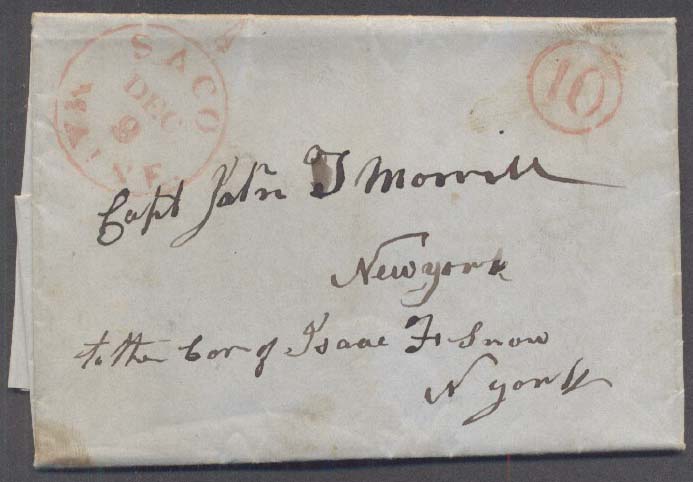 SACO
DEC
9
MAINE.
10
Capt Jotn T Morrill
New york
to the Car of Isaac F. Snow
N york